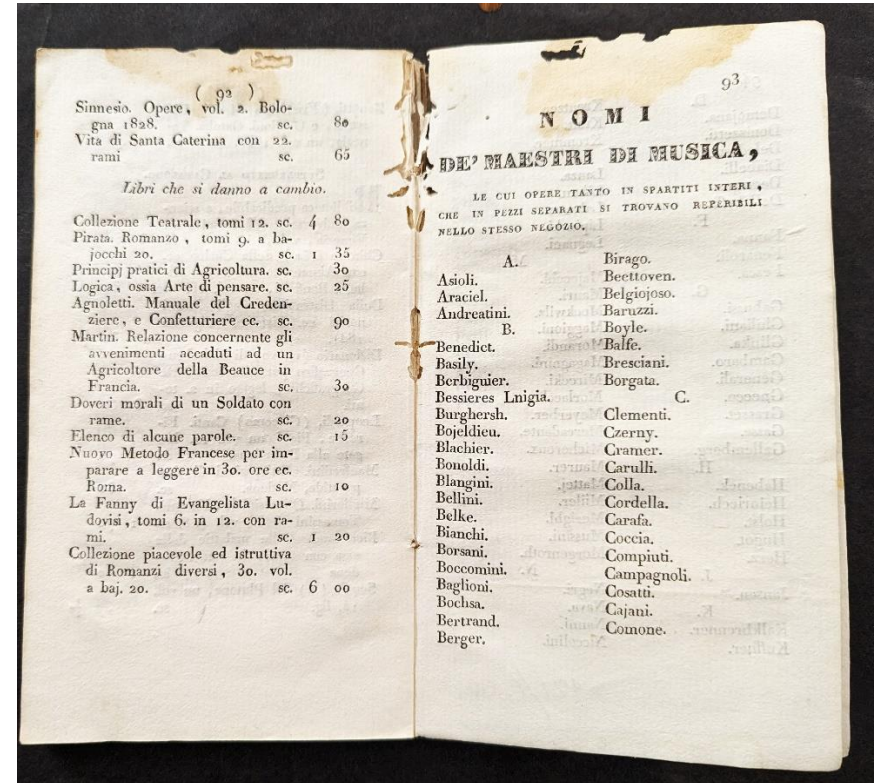 ( 92 )
Sinnesio. Opere, vol. 2. Bolo-
gna 1828. sc. 80
Vita di Santa Caterina con 22.
rami sc. 65
Libri che si danno a cambio.
Collezione Teatrale, tomi 12. sc. 4 80
Pirata. Romanzo, tomi 9. a ba-
jocchi 20. sc. 1 35
Principj pratici di Agricoltura. sc. 30
Logica, ossia Arte di pensare. sc. 25
Agnoletti. Manuale del Creden-
ziere, e Confetturiere ec. sc. 90
Martin. Relazione concernente gli
avvenimenti accaduti ad un
Agricoltore della Beauce in
Francia. sc. 30
Doveri morali di un Soldato con
rame. sc. 20
Elenco di alcune parole. sc. 15
Nuovo Metodo Francese per im-
parare a leggere in 30. ore ec.
Roma. sc. 10
La Fanny di Evangelista Lu-
dovisi, tomi 6. in 12. con ra-
mi. sc. 1 20
Collezione piacevole ed istruttiva
di Romanzi diversi, 30. vol.
a baj. 20. sc. 6 00
93
NOMI
DE' MAESTRI DI MUSICA,
LE CUI OPERE TANTO IN SPARTITI INTERI,
CHE IN PEZZI SEPARATI SI TROVANO REPERIBILI
NELLO STESSO NEGOZIO.
A.
Asioli.
Araciel.
Andreatini.
B.
Benedict.
Basily.
Berbiguier.
Bessieres Lnigia.
Burghersh.
Bojeldieu.
Blachier.
Bonoldi.
Blangini.
Bellini.
Belke.
Bianchi.
Borsani.
Boccomini.
Baglioni.
Bochsa.
Bertrand.
Berger.
Birago.
Beettoven.
Belgiojoso.
Baruzzi.
Boyle.
Balfe.
Bresciani.
Borgata.
C.
Clementi.
Czerny.
Cramer.
Carulli.
Colla.
Cordella.
Carafa.
Coccia.
Compiuti.
Campagnoli.
Cosatti.
Cajani.
Comone.